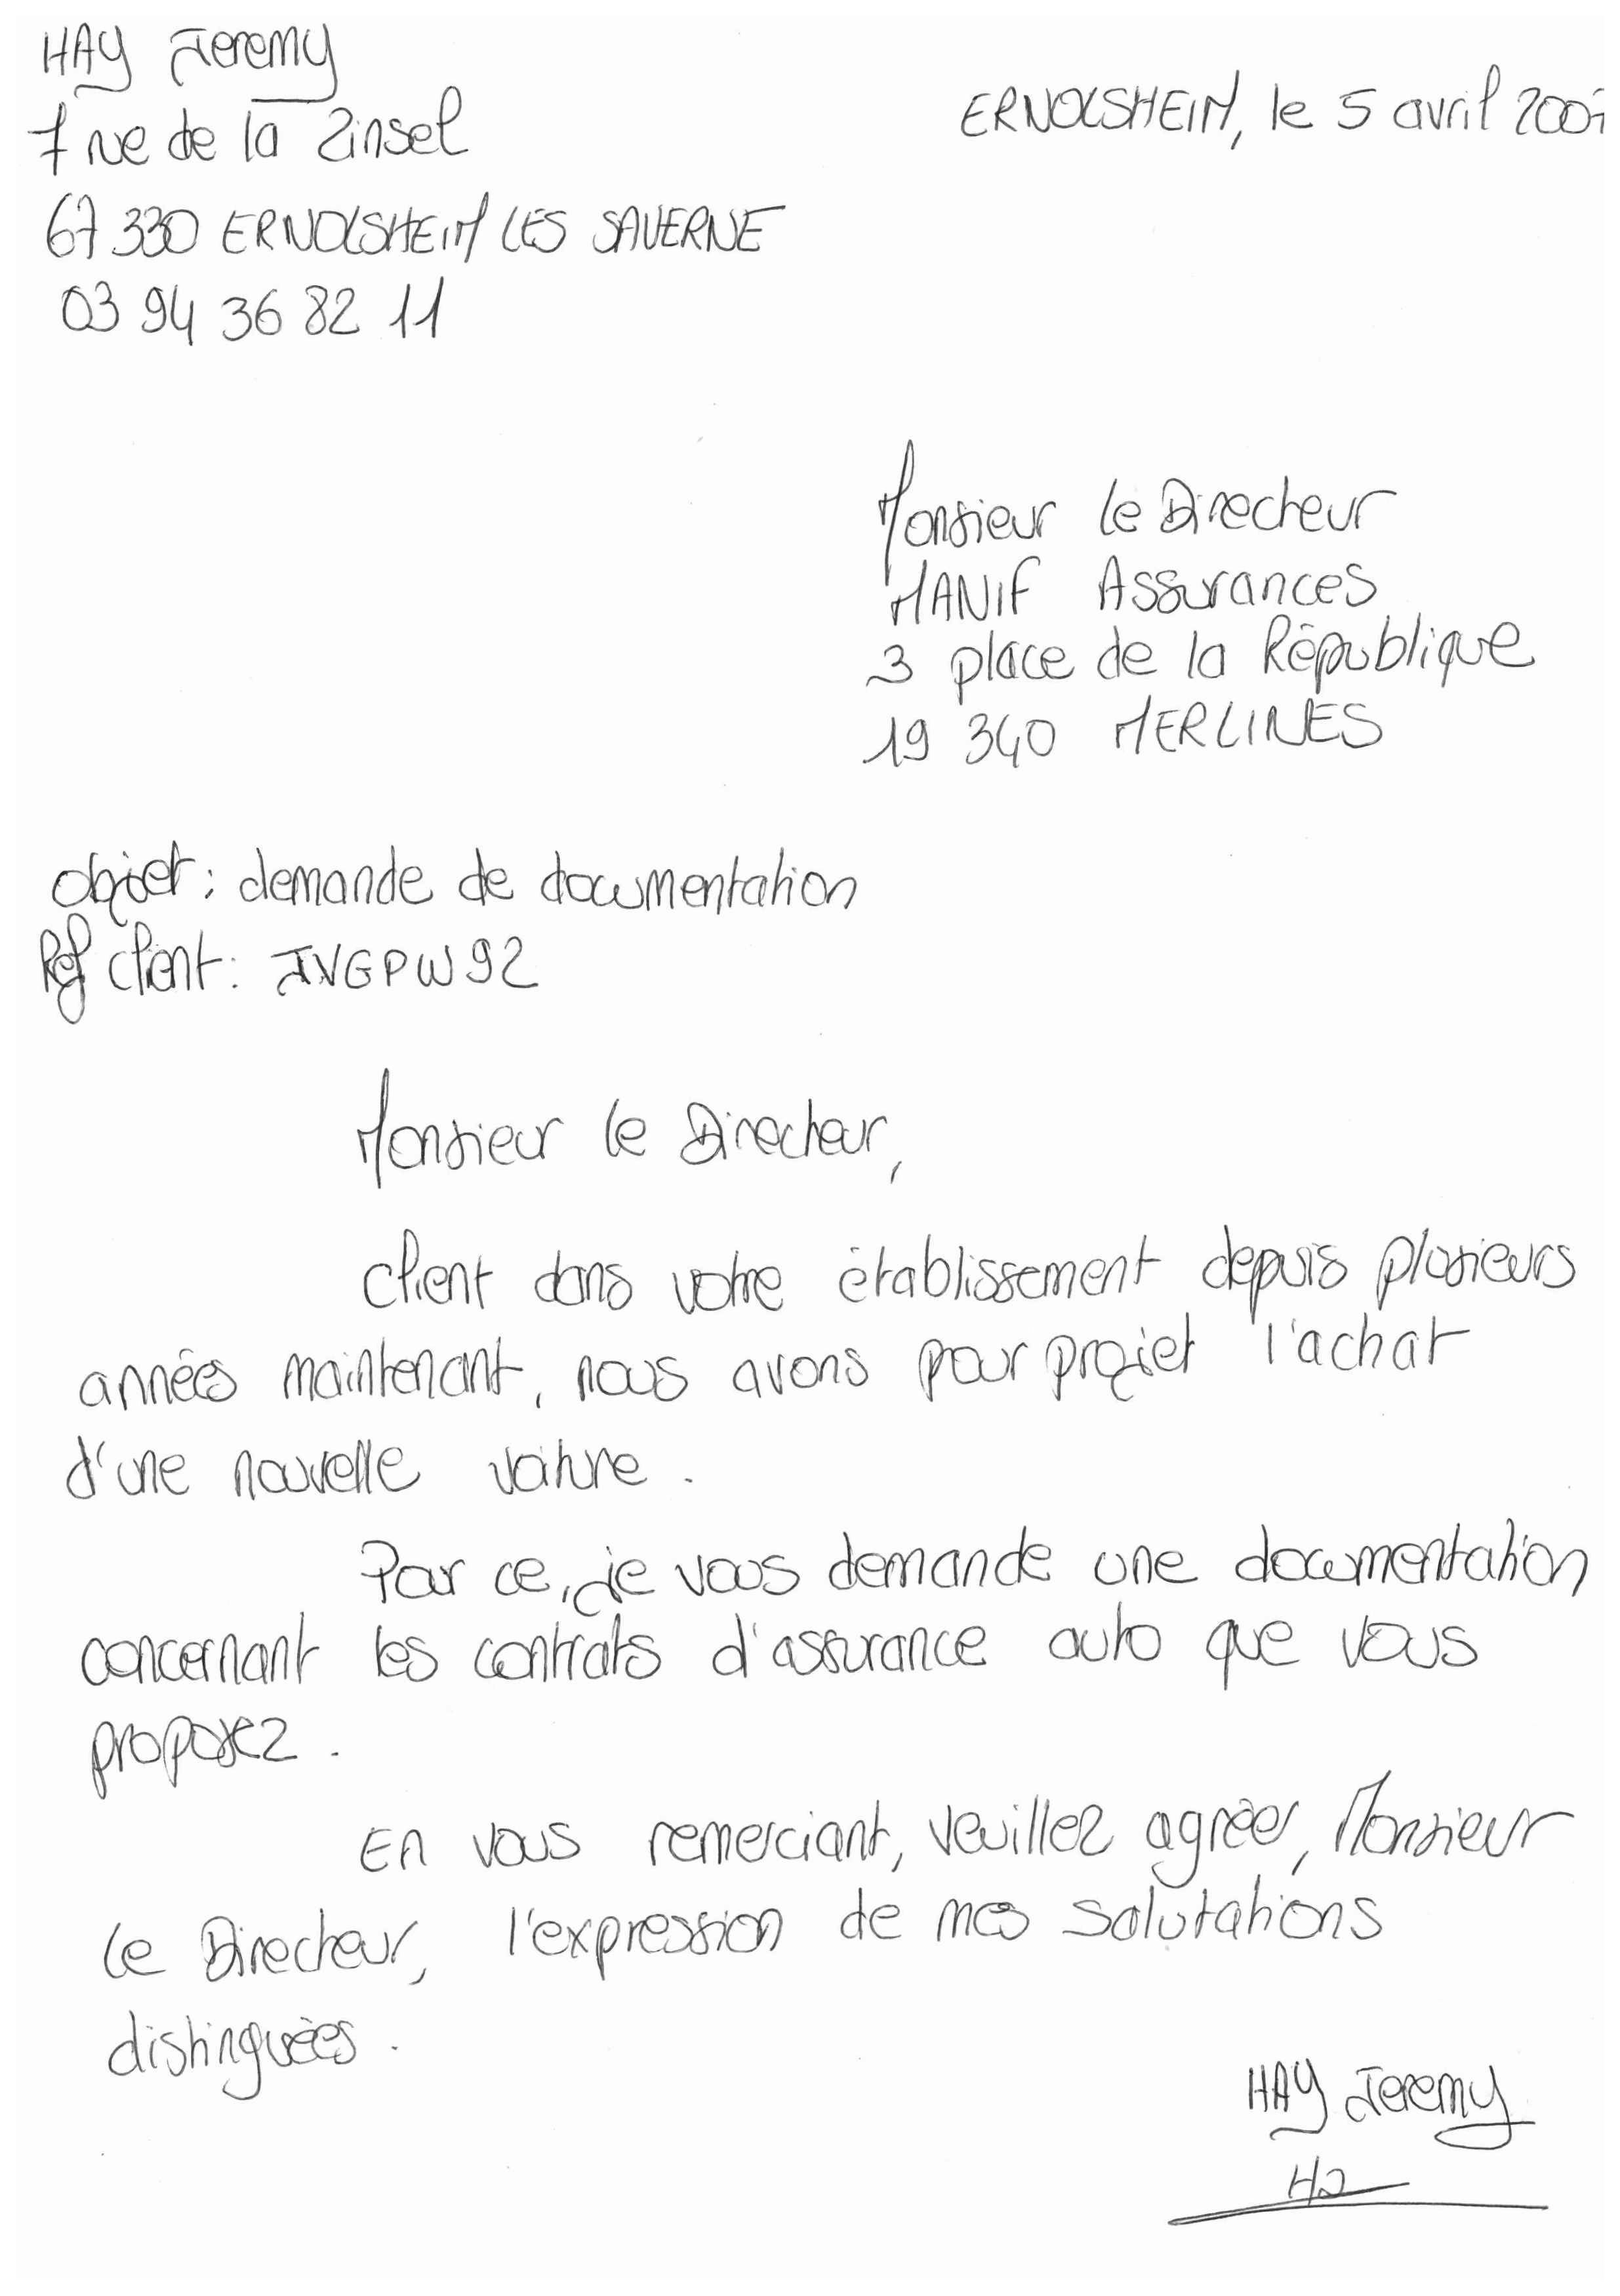 HAY Jeremy
7 rue de la Zinsel
67 330 ERNOLSHEIM LES SAVERNE
03 94 36 82 11
ERNOLSHEIM, le 5 avril
Monsieur le Directeur
MANIF Assurances
3 place de la République
19 340 MERLINES
objet : demande de documentation
Ref client : JVGPW92
Monsieur le Directeur,
client dans votre établissement depuis plusieurs
années maintenant, nous avons pour projet l'achat
d'une nouvelle voiture.
Pour ce, je vous demande une documentation
concernant les contrats d'assurance auto que vous
proposez.
En vous remerciant, veuillez agréer, Monsieur
le Directeur, l'expression de mes salutations
distinguées.
HAY Jeremy